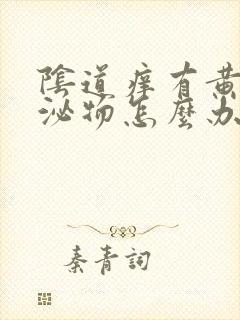 陰道痒有黃
泌物怎麼办
秦青詞